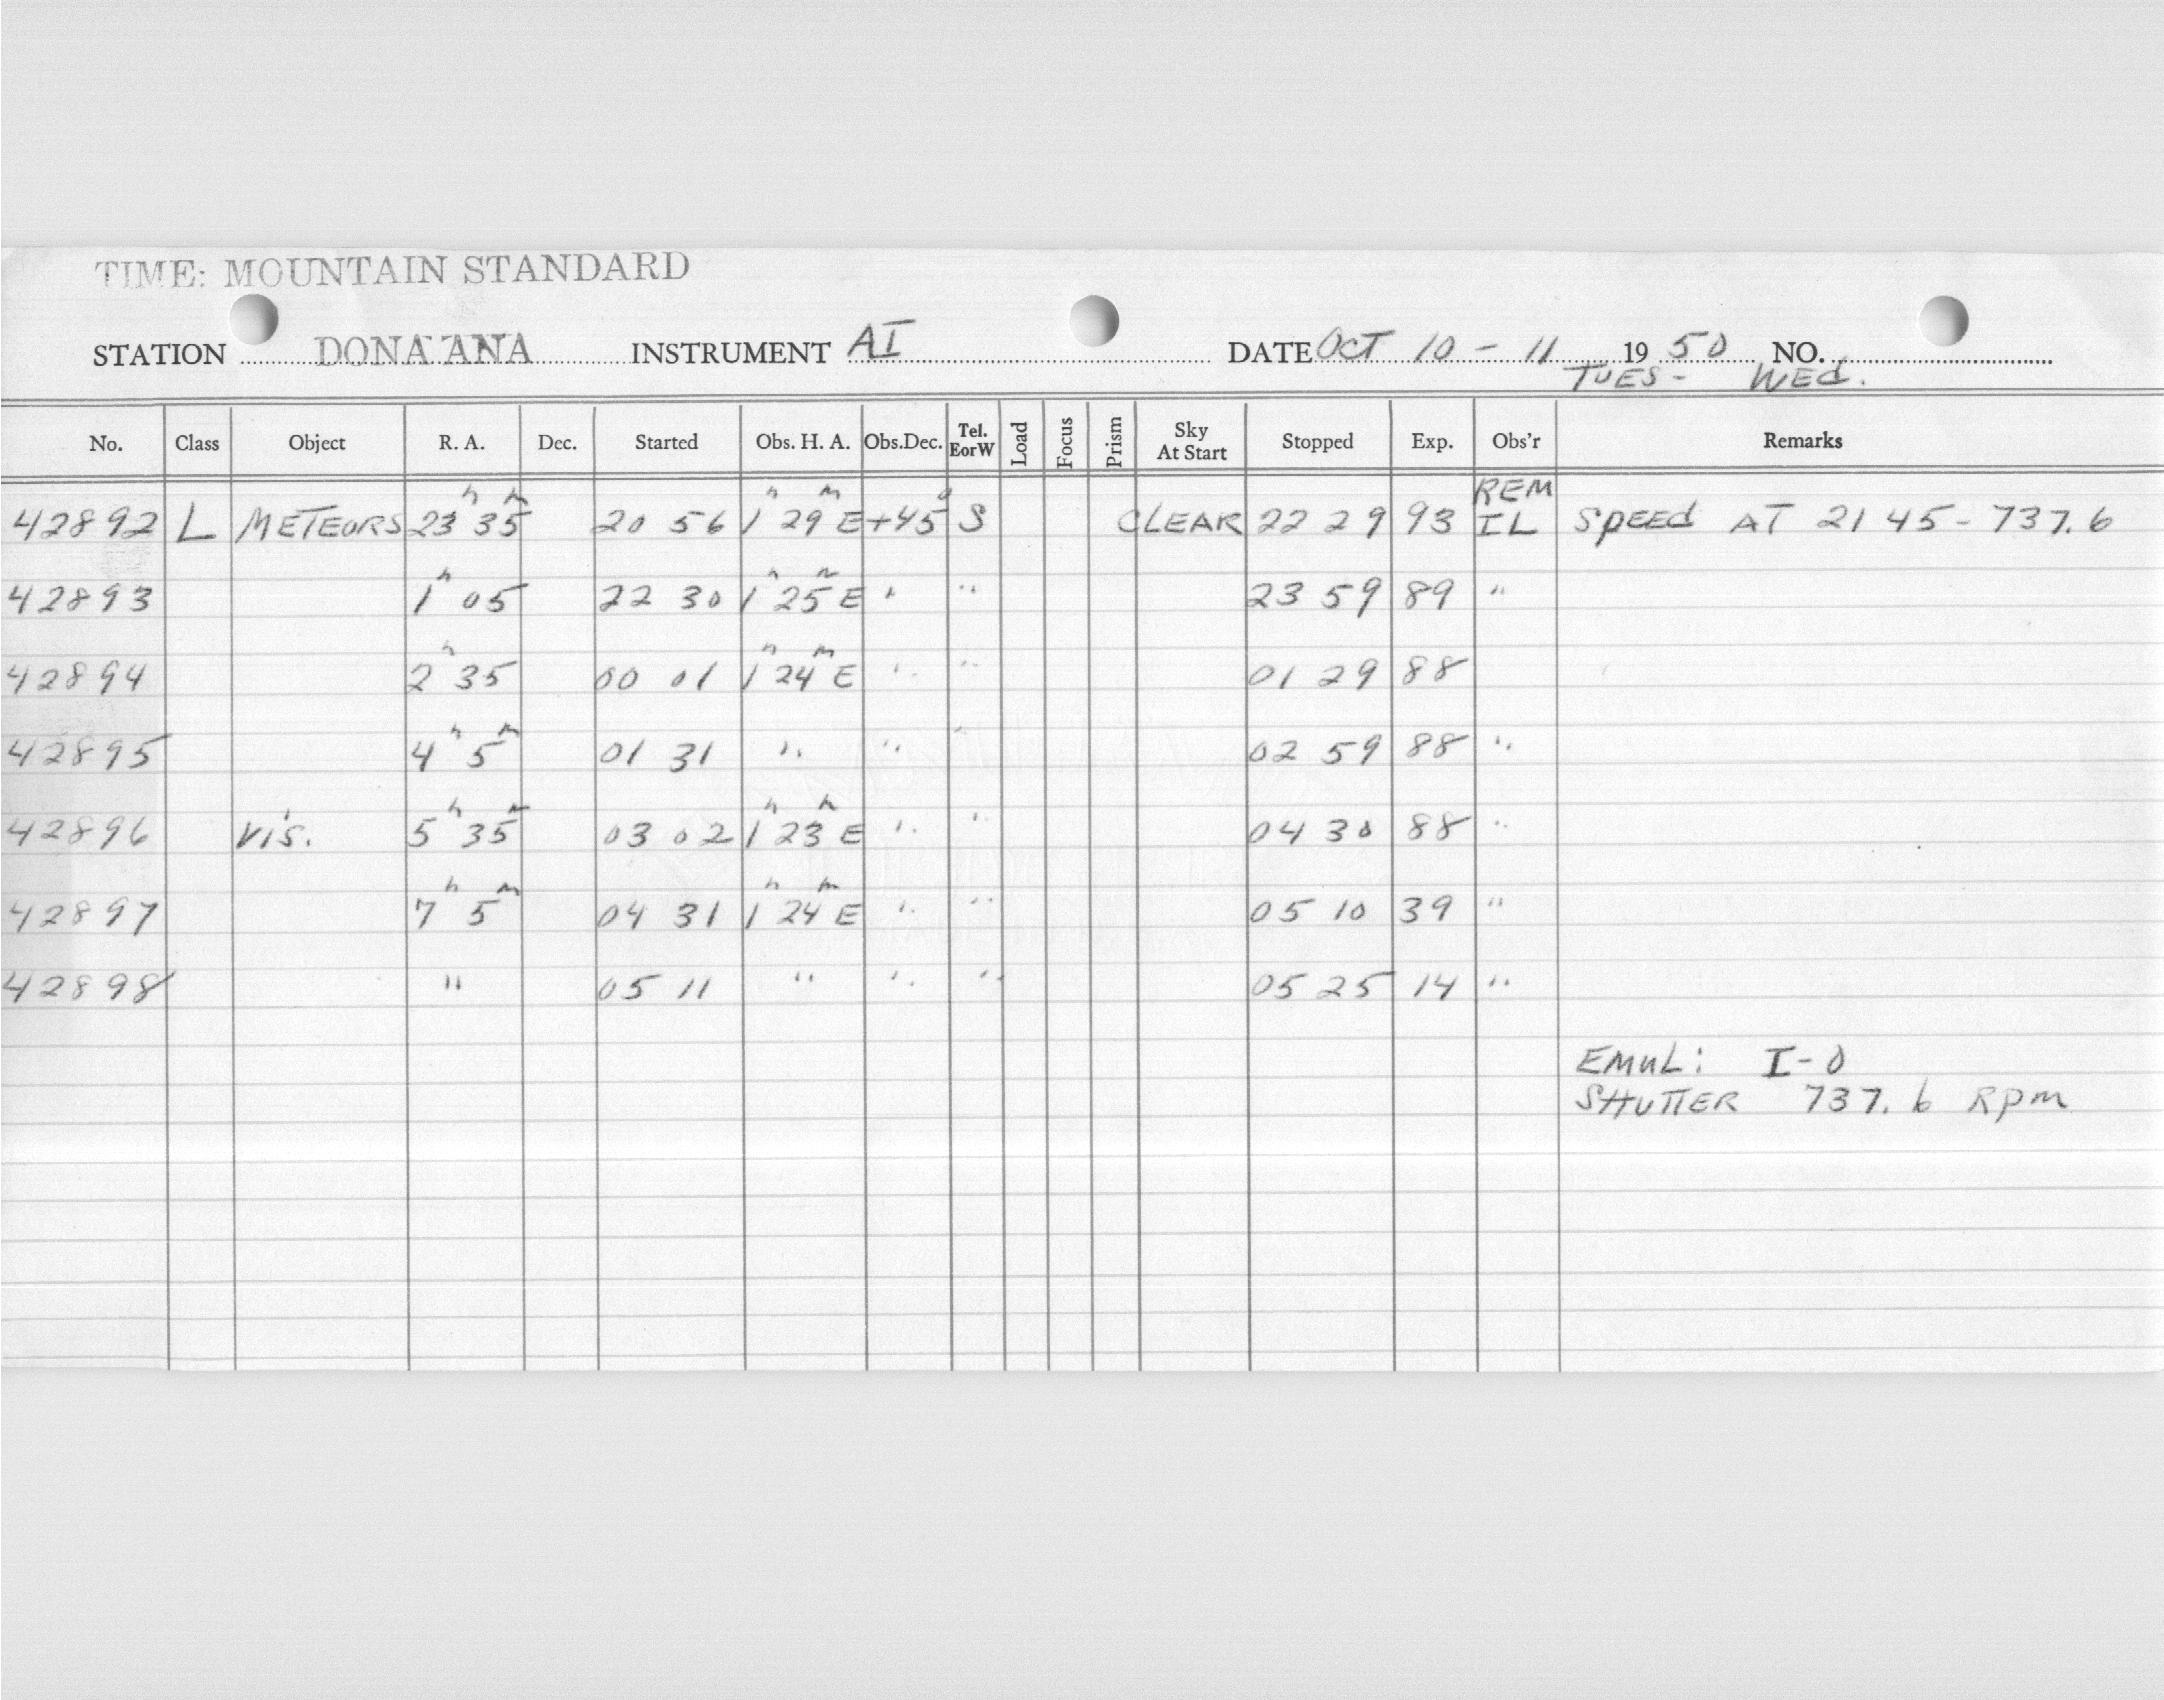 TIME: MOUNTAIN STANDARD
STATION DONA ANA INSTRUMENT AI DATE OCT 10 - 11 1950 NO.
TUES - WEd.
No. Class Object R. A. Dec. Started Obs. H. A. Obs.Dec. Tel. EorW Load Focus Prism Sky At Start Stopped Exp. Obs'r Remarks
42892 L METEORS 23h 35m 20 56 1h 29m E +45° S CLEAR 22 29 93 REM IL SpEEd AT 21 45 - 737.6
42893 1h 05 22 30 1h 25m E " " 23 59 89 "
42894 2h 35 00 01 1h 24m E " " 01 29 88
42895 4h 5m 01 31 " " " 02 59 88 "
42896 Vis. 5h 35m 03 02 1h 23m E " " 04 30 88 "
42897 7h 5m 04 31 1h 24m E " " 05 10 39 "
42898 " 05 11 " " " 05 25 14 "
EMUL: I-O
SHUTTER 737.6 RPM